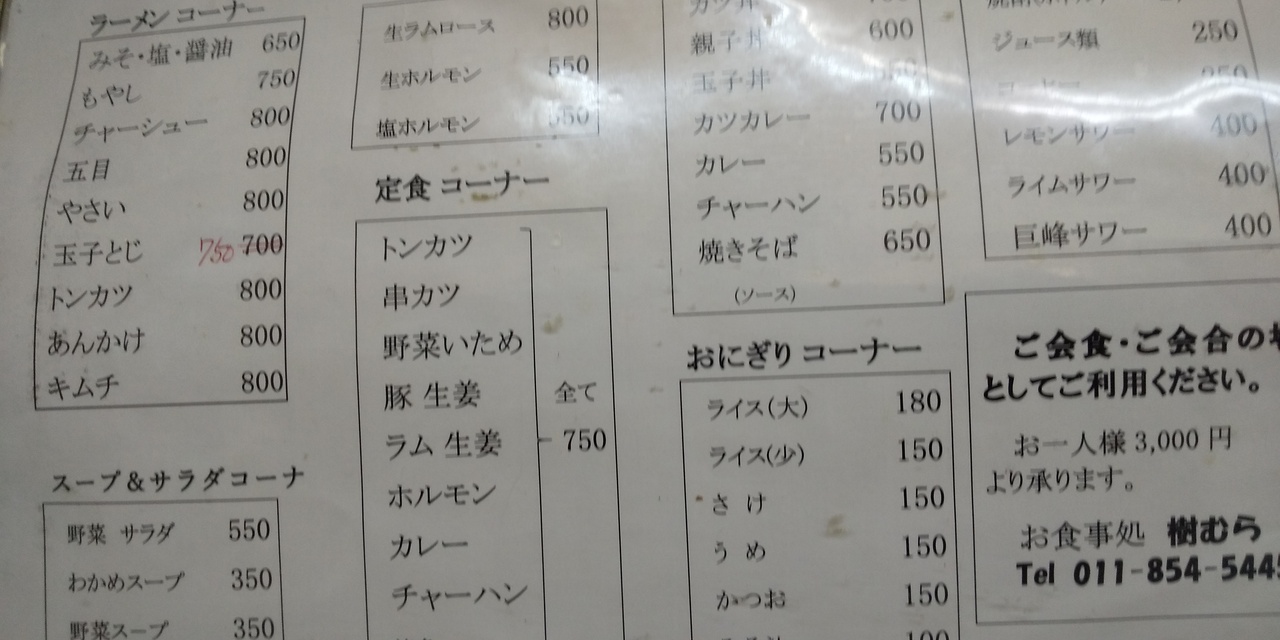 ラーメン コーナー
みそ・塩・醤油 650
もやし 750
チャーシュー 800
五目 800
やさい 800
玉子とじ 750 700
トンカツ 800
あんかけ 800
キムチ 800
スープ&サラダコーナ
野菜 サラダ 550
わかめスープ 350
野菜スープ 350
生ラムロース 800
生ホルモン 550
塩ホルモン 550
定食 コーナー
トンカツ
串カツ
野菜いため
豚 生姜 全て
ラム 生姜 750
ホルモン
カレー
チャーハン
カツ丼
親子丼 600
玉子丼
カツカレー 700
カレー 550
チャーハン 550
焼きそば 650
(ソース)
おにぎり コーナー
ライス(大) 180
ライス(少) 150
さ け 150
う め 150
かつお 150
ジュース類 250
コーヒー 250
レモンサワー 400
ライムサワー 400
巨峰サワー 400
ご会食・ご会合の
としてご利用ください。
お一人様 3,000 円
より承ります。
お食事処 樹むら
Tel 011-854-5445